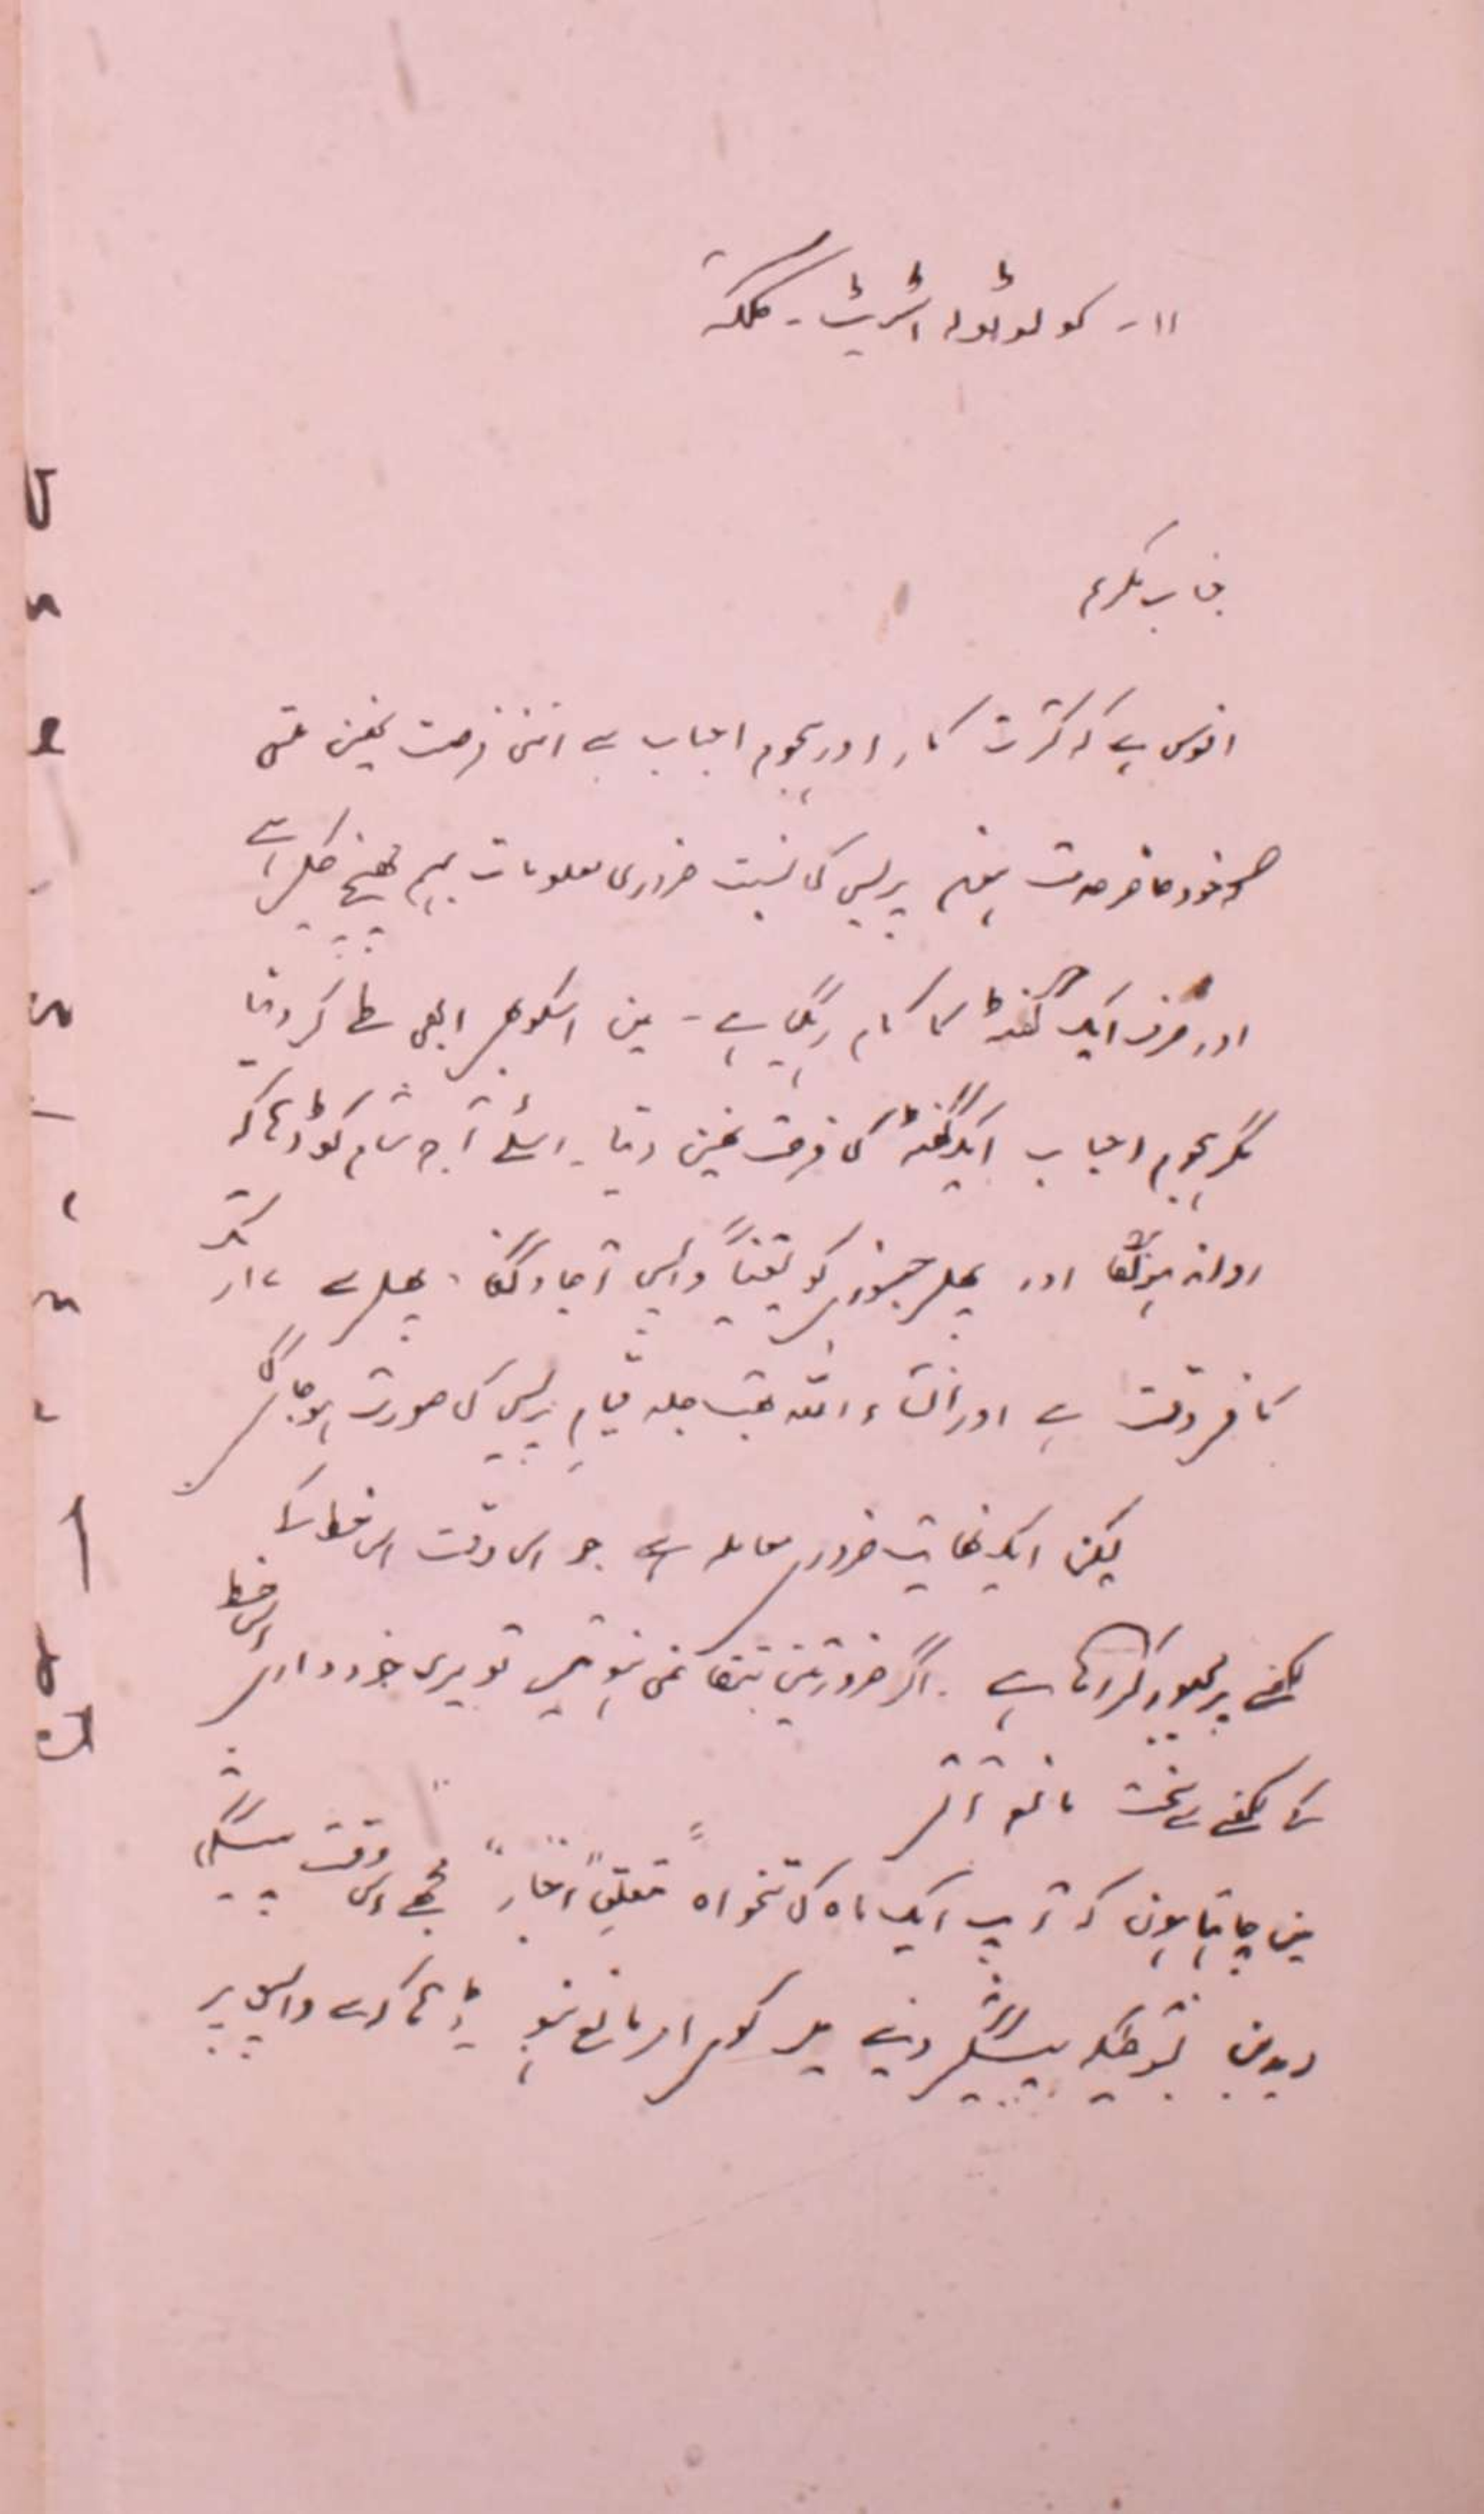 ۱۱ - کولوٹولہ اسٹریٹ - کلکتہ
جناب مکرم
افسوس ہے کہ کثرت کار اور ہجوم احباب سے اتنی فرصت نہیں ملتی
کہ خود حاضر خدمت ہوں پریس کی نسبت ضروری معلومات بہم پہنچ چکی ہے
اور صرف ایک گھنٹہ کا کام رہگیا ہے - میں اسکو بھی ابھی طے کر دیتا
مگر ہجوم احباب ایک گھنٹہ کی فرصت نہیں دیتا - اسلئے آج شام کو ڈھاکہ
روانہ ہونگا اور پہلی جنوری کو یقیناً واپس آجاؤنگا - پہلی سے ۱۰ تک
کافی وقت ہے اور انشاء اللہ بہت جلد قیام پریس کی صورت ہوجائیگی
لیکن ایک نہایت ضروری معاملہ ہے جو اس وقت اس خط کے
لکھنے پر مجبور کر رہا ہے - اگر ضرورتیں تقاضہ نہ ہوتیں تو میری خودداری اس خط
کے لکھنے سے سخت مانع آتی
میں چاہتا ہوں کہ آپ ایک ماہ کی تنخواہ متعلق "اخبار" مجھے اس وقت پیشگی
دیدیں بشرطیکہ پیشگی دینے میں کوئی امر مانع نہو ڈھاکہ سے واپسی پر